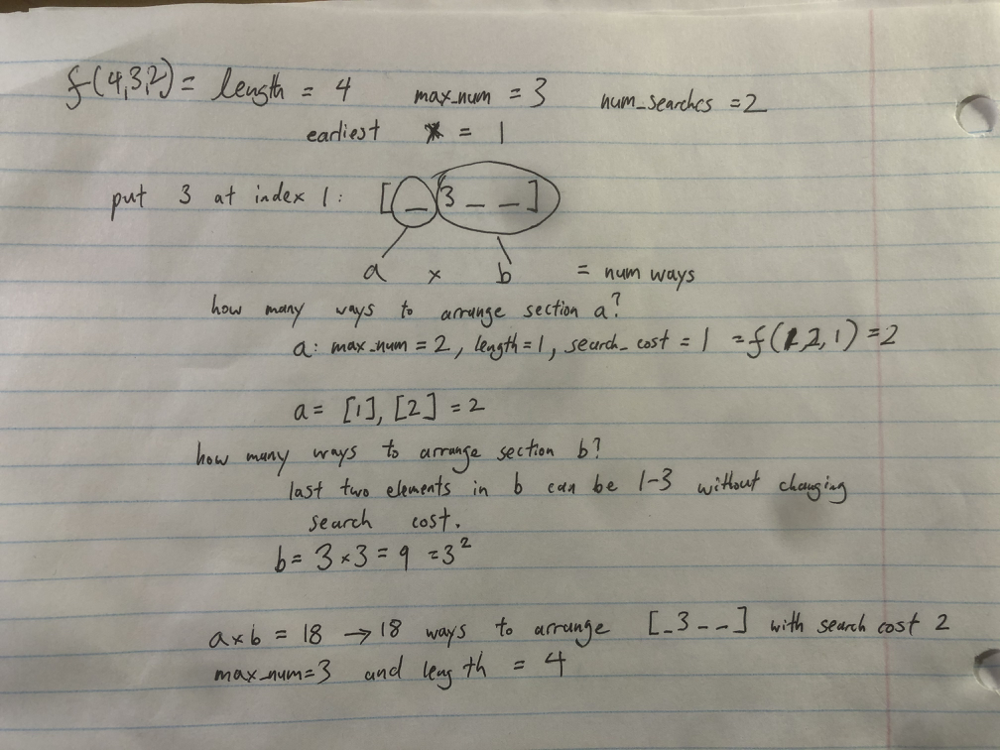 f(4,3,2) = length = 4 max_num = 3 num_searches = 2
earliest = 1
put 3 at index 1: [ _ 3 _ _ ]
a × b = num ways
how many ways to arrange section a?
a: max_num = 2, length = 1, search_cost = 1 = f(1,2,1) = 2
a = [1], [2] = 2
how many ways to arrange section b?
last two elements in b can be 1-3 without changing
search cost.
b = 3 × 3 = 9 = 3²
a×b = 18 → 18 ways to arrange [ _ 3 _ _ ] with search cost 2
max_num=3 and length = 4